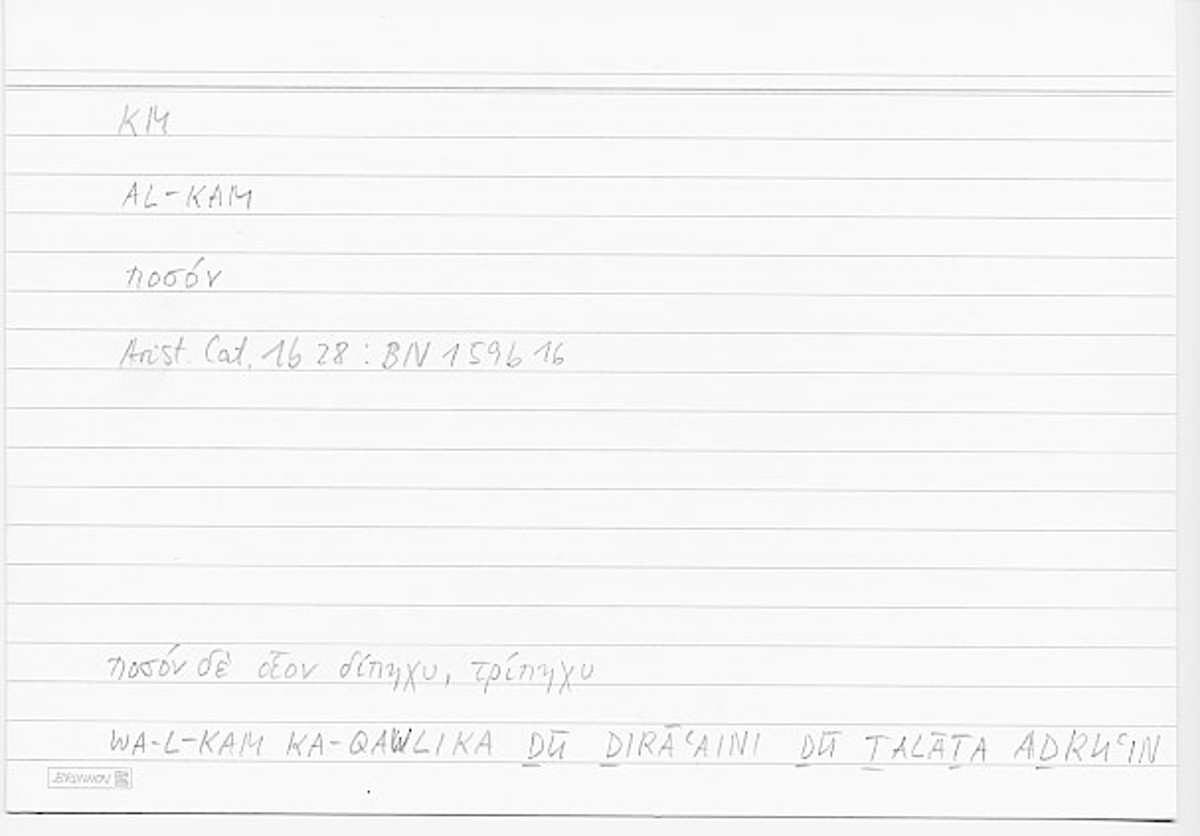 KM
AL-KAM
ποσόν
Arist. Cat. 1b 28 : BN 159b 16
ποσὸν δὲ οἷον δίπηχυ, τρίπηχυ
WA-L-KAM KA-QAWLIKA ḎŪ ḎIRĀʿAINI ḎŪ ṮALĀṮA AḎRUʿIN
BRUNNEN